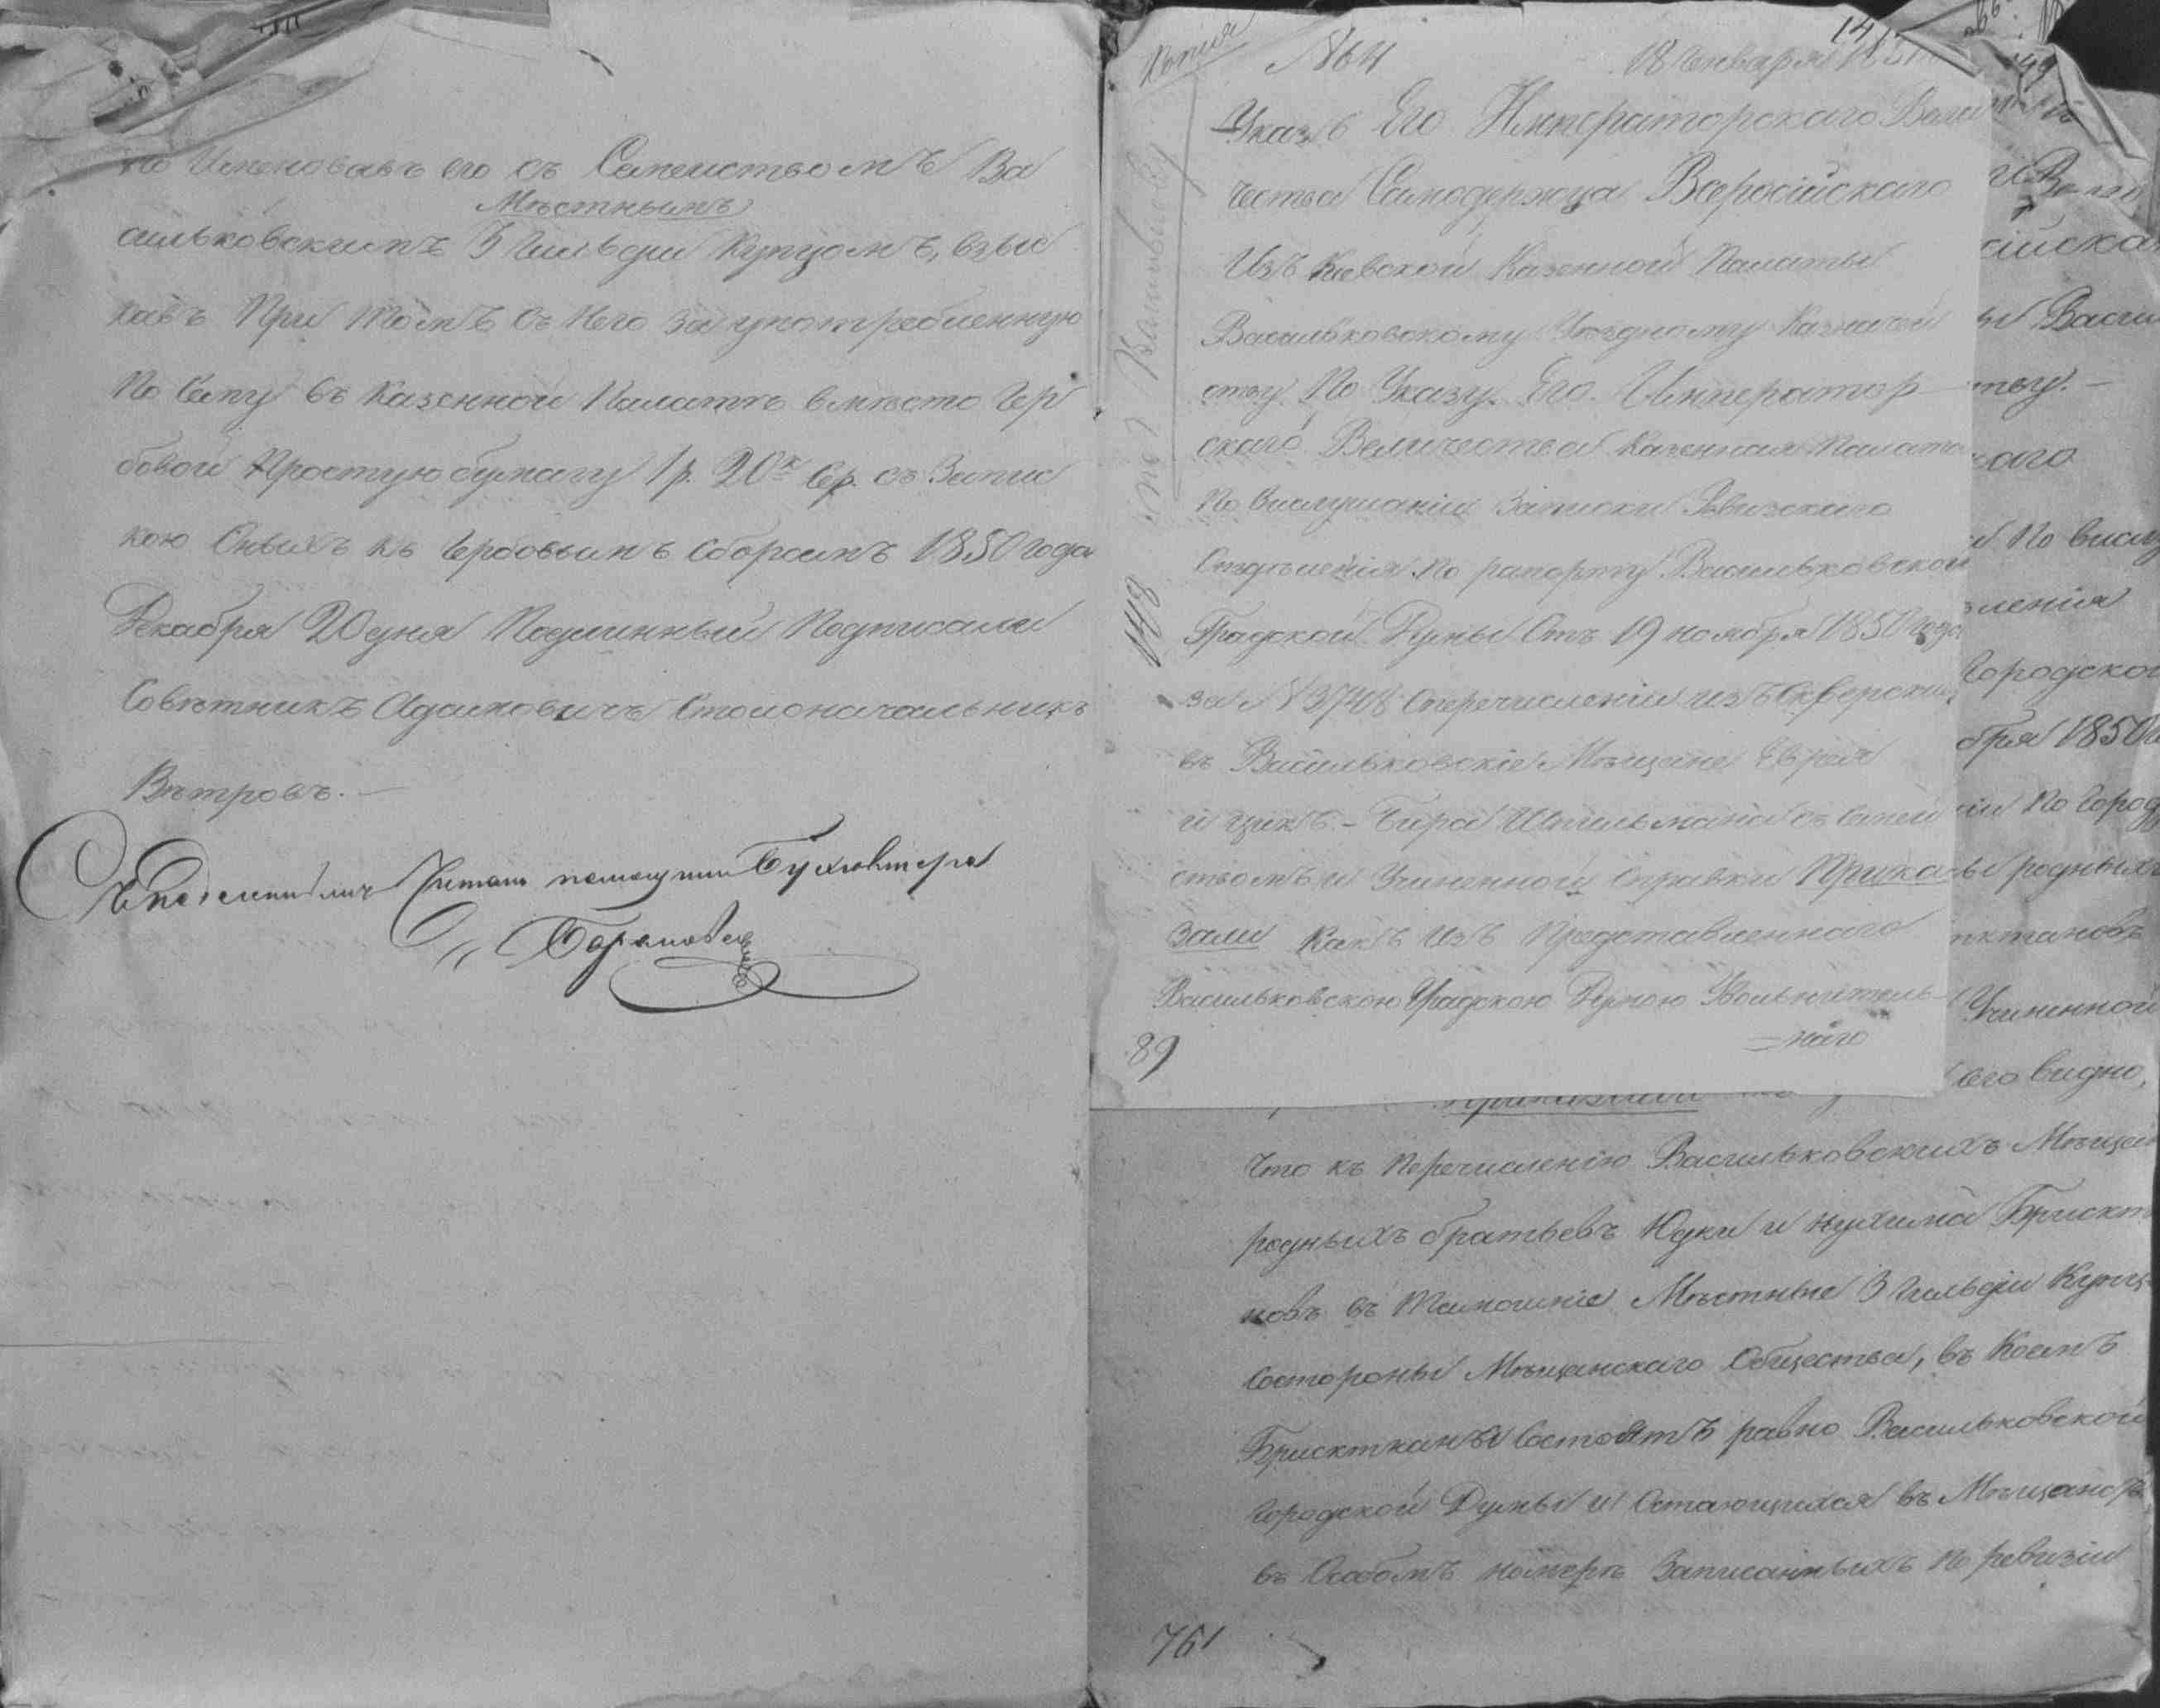 но Именовавъ его съ Семеиством Ъ Ва
Мѣстнымъ
сильковскимъ 3 Гильдіи Купцомъ, взыс
кавъ При томъ съ Него за употребленную
По Сему въ Казенной Палатѣ вмѣсто Гер
бовой Простую бумагу 1 р. 20 к Сер. съ Запис
кою Оныхъ къ Гербовымъ сборамъ 1850 года
Декабря 20 дня Подлинный Подписали
Совѣтникъ Адамовичъ Столоначальникъ
Вѣтровъ.
Читалъ помощник Бухгалтера
Копия
№ 64
18 Января
14
Указъ Его Императорскаго Вели
чества Самодержца Всеросійскаго
Изъ Киевской Казенной Палаты
Васильковскому Уѣздному Казначей
ству По Указу Его Император
скаго Величества Казенная Палата
По Выслушаніи Записки Ревизскаго
Отдѣленія По рапорту Васильковской
Градской Думы Отъ 19 ноября 1850 года
за № 3748 О перечисленіи изъ Сквирских
въ Васильковскіе Мѣщане Еврея
Ицикъ-Бира Шпильмана съ Семей
ствомъ и Учиненной Справки Прика
зали Какъ Изъ Представленнаго
Васильковскою Градскою Думою Увольнитель
наго
148
89
сійска
Васи
ству.
каго
По выслу
вленія
Городской
бря 1850
По Город
родныхъ
Учиненной
его видно,
Приказали
Что къ Перечисленію Васильковскихъ Мѣщан
родныхъ братьевъ Юдки и Нухима Брискт
новъ въ Тамошніе Мѣстные 3 Гильдіи Купц
Состороны Мѣщанскаго Общества, въ Коемъ
Брисктканы Состоятъ равно Васильковской
Городской Думы и Остающихся въ Мѣщанст
въ Особомъ номерѣ Записанныхъ По ревизіи
761